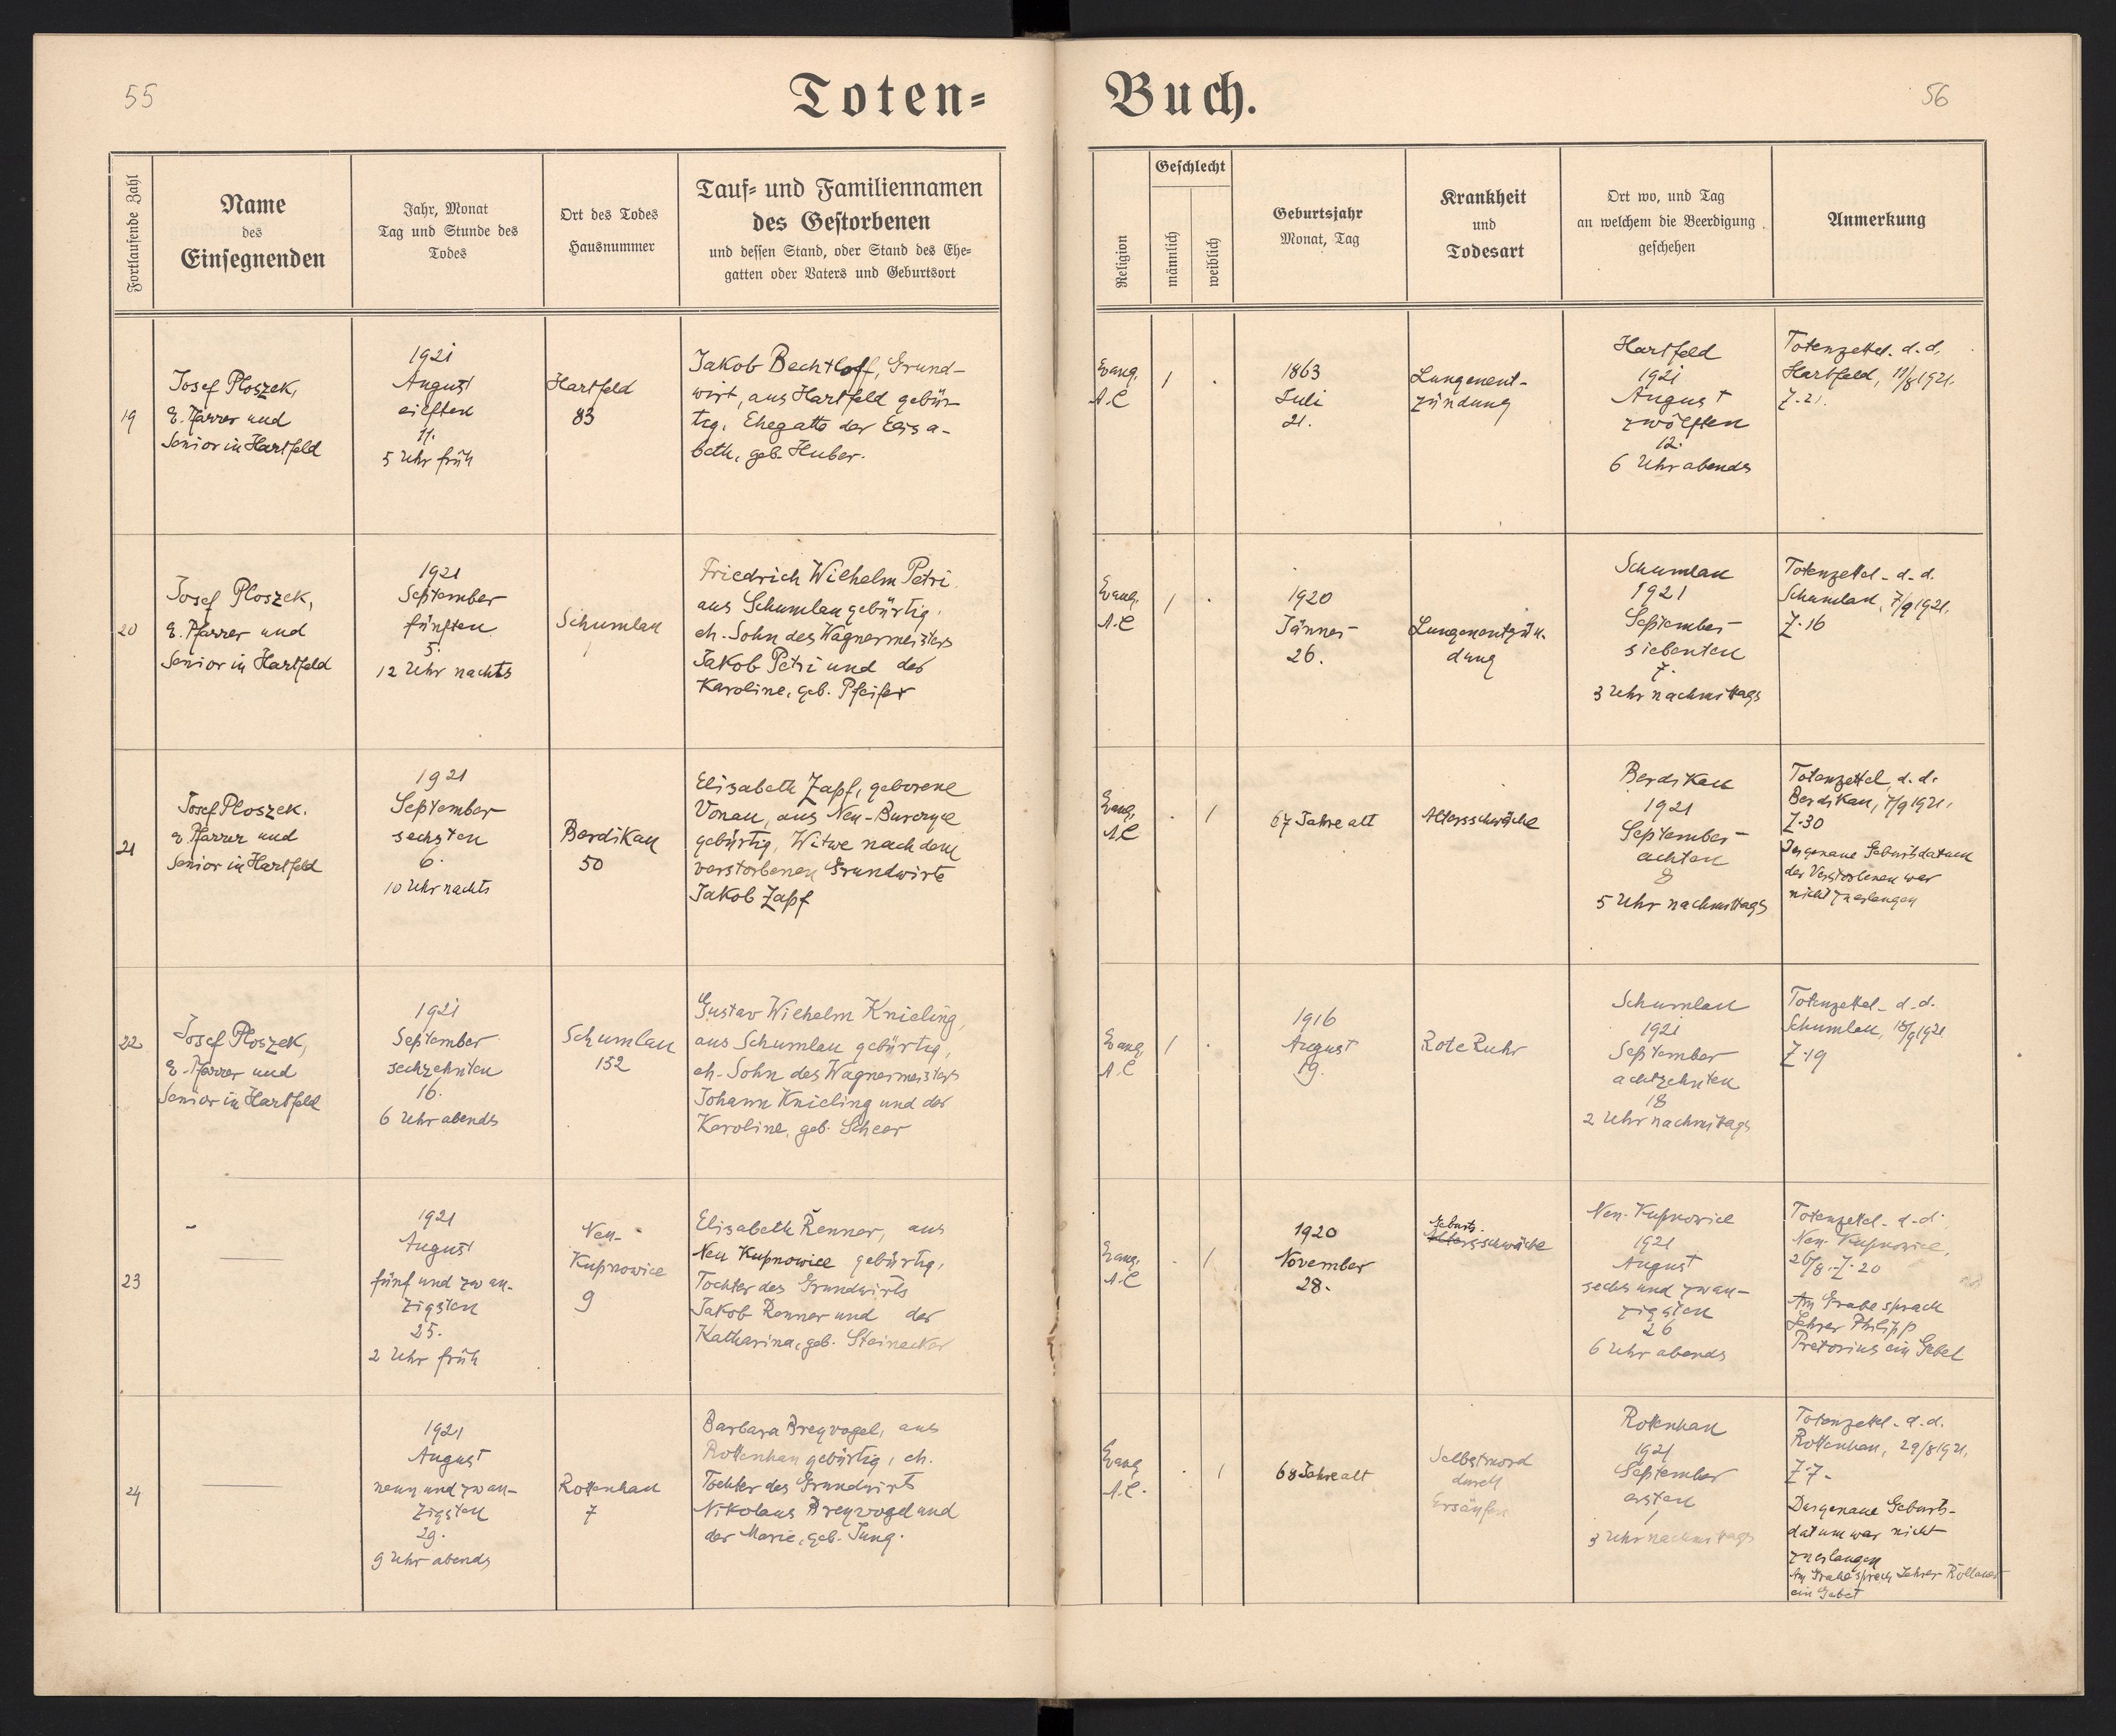 55
Toten=
Buch.
56
Fortlaufende Zahl
Name
des
Einsegnenden
Jahr, Monat
Tag und Stunde des
Todes
Ort des Todes
Hausnummer
Tauf= und Familiennamen
des Gestorbenen
und dessen Stand, oder Stand des Ehe=
gatten oder Vaters und Geburtsort
Religion
Geschlecht
männlich
weiblich
Geburtsjahr
Monat, Tag
Krankheit
und
Todesart
Ort wo, und Tag
an welchem die Beerdigung
geschehen
Anmerkung
19
Josef Ploszek,
E. Pfarrer und
Senior in Hartfeld
1921
August
eilften
11.
5 Uhr früh
Hartfeld
83
Jakob Bechtloff, Grund-
wirt, aus Hartfeld gebür-
tig, Ehegatte der Elisa-
beth, geb. Huber.
Evang.
A.C
1
.
1863
Juli
21.
Lungenent-
zündung
Hartfeld
1921
August
zwölften
12.
6 Uhr abends
Totenzettel d.d.
Hartfeld, 11/8 1921.
Z. 21.
20
Josef Ploszek,
E. Pfarrer und
Senior in Hartfeld
1921
September
fünften
5.
12 Uhr nachts
Schumlau
Friedrich Wilhelm Petri
aus Schumlau gebürtig,
eh. Sohn des Wagnermeisters
Jakob Petri und der
Karoline, geb. Pfeifer
Evang.
A.C
1
.
1920
Jänner
26.
Lungenentzün-
dung
Schumlau
1921
September
siebenten
7.
3 Uhr nachmittags
Totenzettel d.d.
Schumlau, 7/9 1921.
Z. 16
21
Josef Ploszek.
E. Pfarrer und
Senior in Hartfeld
1921
September
sechsten
6.
10 Uhr nachts
Berdikau
50
Elisabeth Zapf, geborene
Vonau, aus Neu-Burczyce
gebürtig, Witwe nach dem
verstorbenen Grundwirte
Jakob Zapf
Evang.
A.C
.
1
67 Jahre alt
Altersschwäche
Berdikau
1921
September
achten
8
5 Uhr nachmittags
Totenzettel d.d.
Berdikau, 7/9 1921.
Z. 30
Das genaue Geburtsdatum
der Verstorbenen war
nicht zu erlangen
22
Josef Ploszek,
E. Pfarrer und
Senior in Hartfeld
1921
September
sechzehnten
16.
6 Uhr abends
Schumlau
152
Gustav Wilhelm Knieling,
aus Schumlau gebürtig,
eh. Sohn des Wagnermeisters
Johann Knieling und der
Karoline, geb. Scheer
Evang.
A.C
1
.
1916
August
19.
Rote Ruhr
Schumlau
1921
September
achtzehnten
18
2 Uhr nachmittags
Totenzettel d.d.
Schumlau, 1921
Z. 19
23
1921
August
fünf und zwan-
zigsten
25.
2 Uhr früh
Neu-
Kupnowice
9
Elisabeth Renner, aus
Neu Kupnowice gebürtig,
Tochter des Grundwirts
Jakob Renner und der
Katharina, geb. Steinacker
Evang.
A.C
.
1
1920
November
28.
Geburts-
Altersschwäche
Neu-Kupnowice
1921
August
sechs und zwan-
zigsten
26
6 Uhr abends
Totenzettel d.d.
Neu-Kupnowice,
26/8. Z. 20
Am Grabe sprach
Lehrer Philipp
Pretorius ein Gebet
24
1921
August
neun und zwan-
zigsten
29.
9 Uhr abends
Rottenhan
7
Barbara Breyvogel, aus
Rottenhan gebürtig, eh.
Tochter des Grundwirts
Nikolaus Breyvogel und
der Marie, geb. Jung.
Evang
A.C.
.
1
68 Jahre alt
Selbstmord
durch
Ersäufen
Rottenhan
1921
September
ersten
1
3 Uhr nachmittags
Totenzettel d.d.
Rottenhan, 29/8 1921.
Z. 7.
Das genaue Geburts-
datum war nicht
zu erlangen
Am Grabe sprach Lehrer
ein Gebet